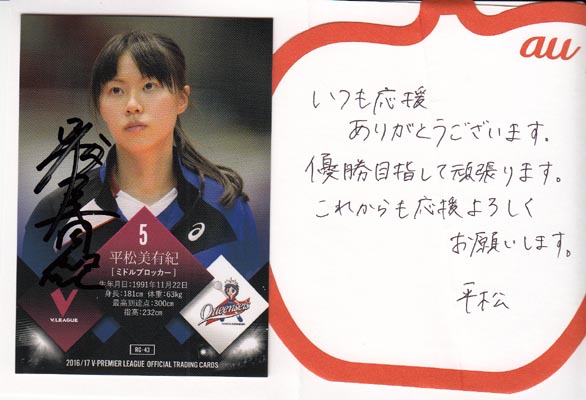 5
平松美有紀
[ミドルブロッカー]
生年月日:1991年11月22日
身長:181cm 体重:63kg
最高到達点:300cm
指高:232cm
V.LEAGUE
Queenseis
RG-43
2016/17 V・PREMIER LEAGUE OFFICIAL TRADING CARDS
au
いつも応援
ありがとうございます.
優勝目指して頑張ります。
これからも応援よろしく
お願いします。
平松